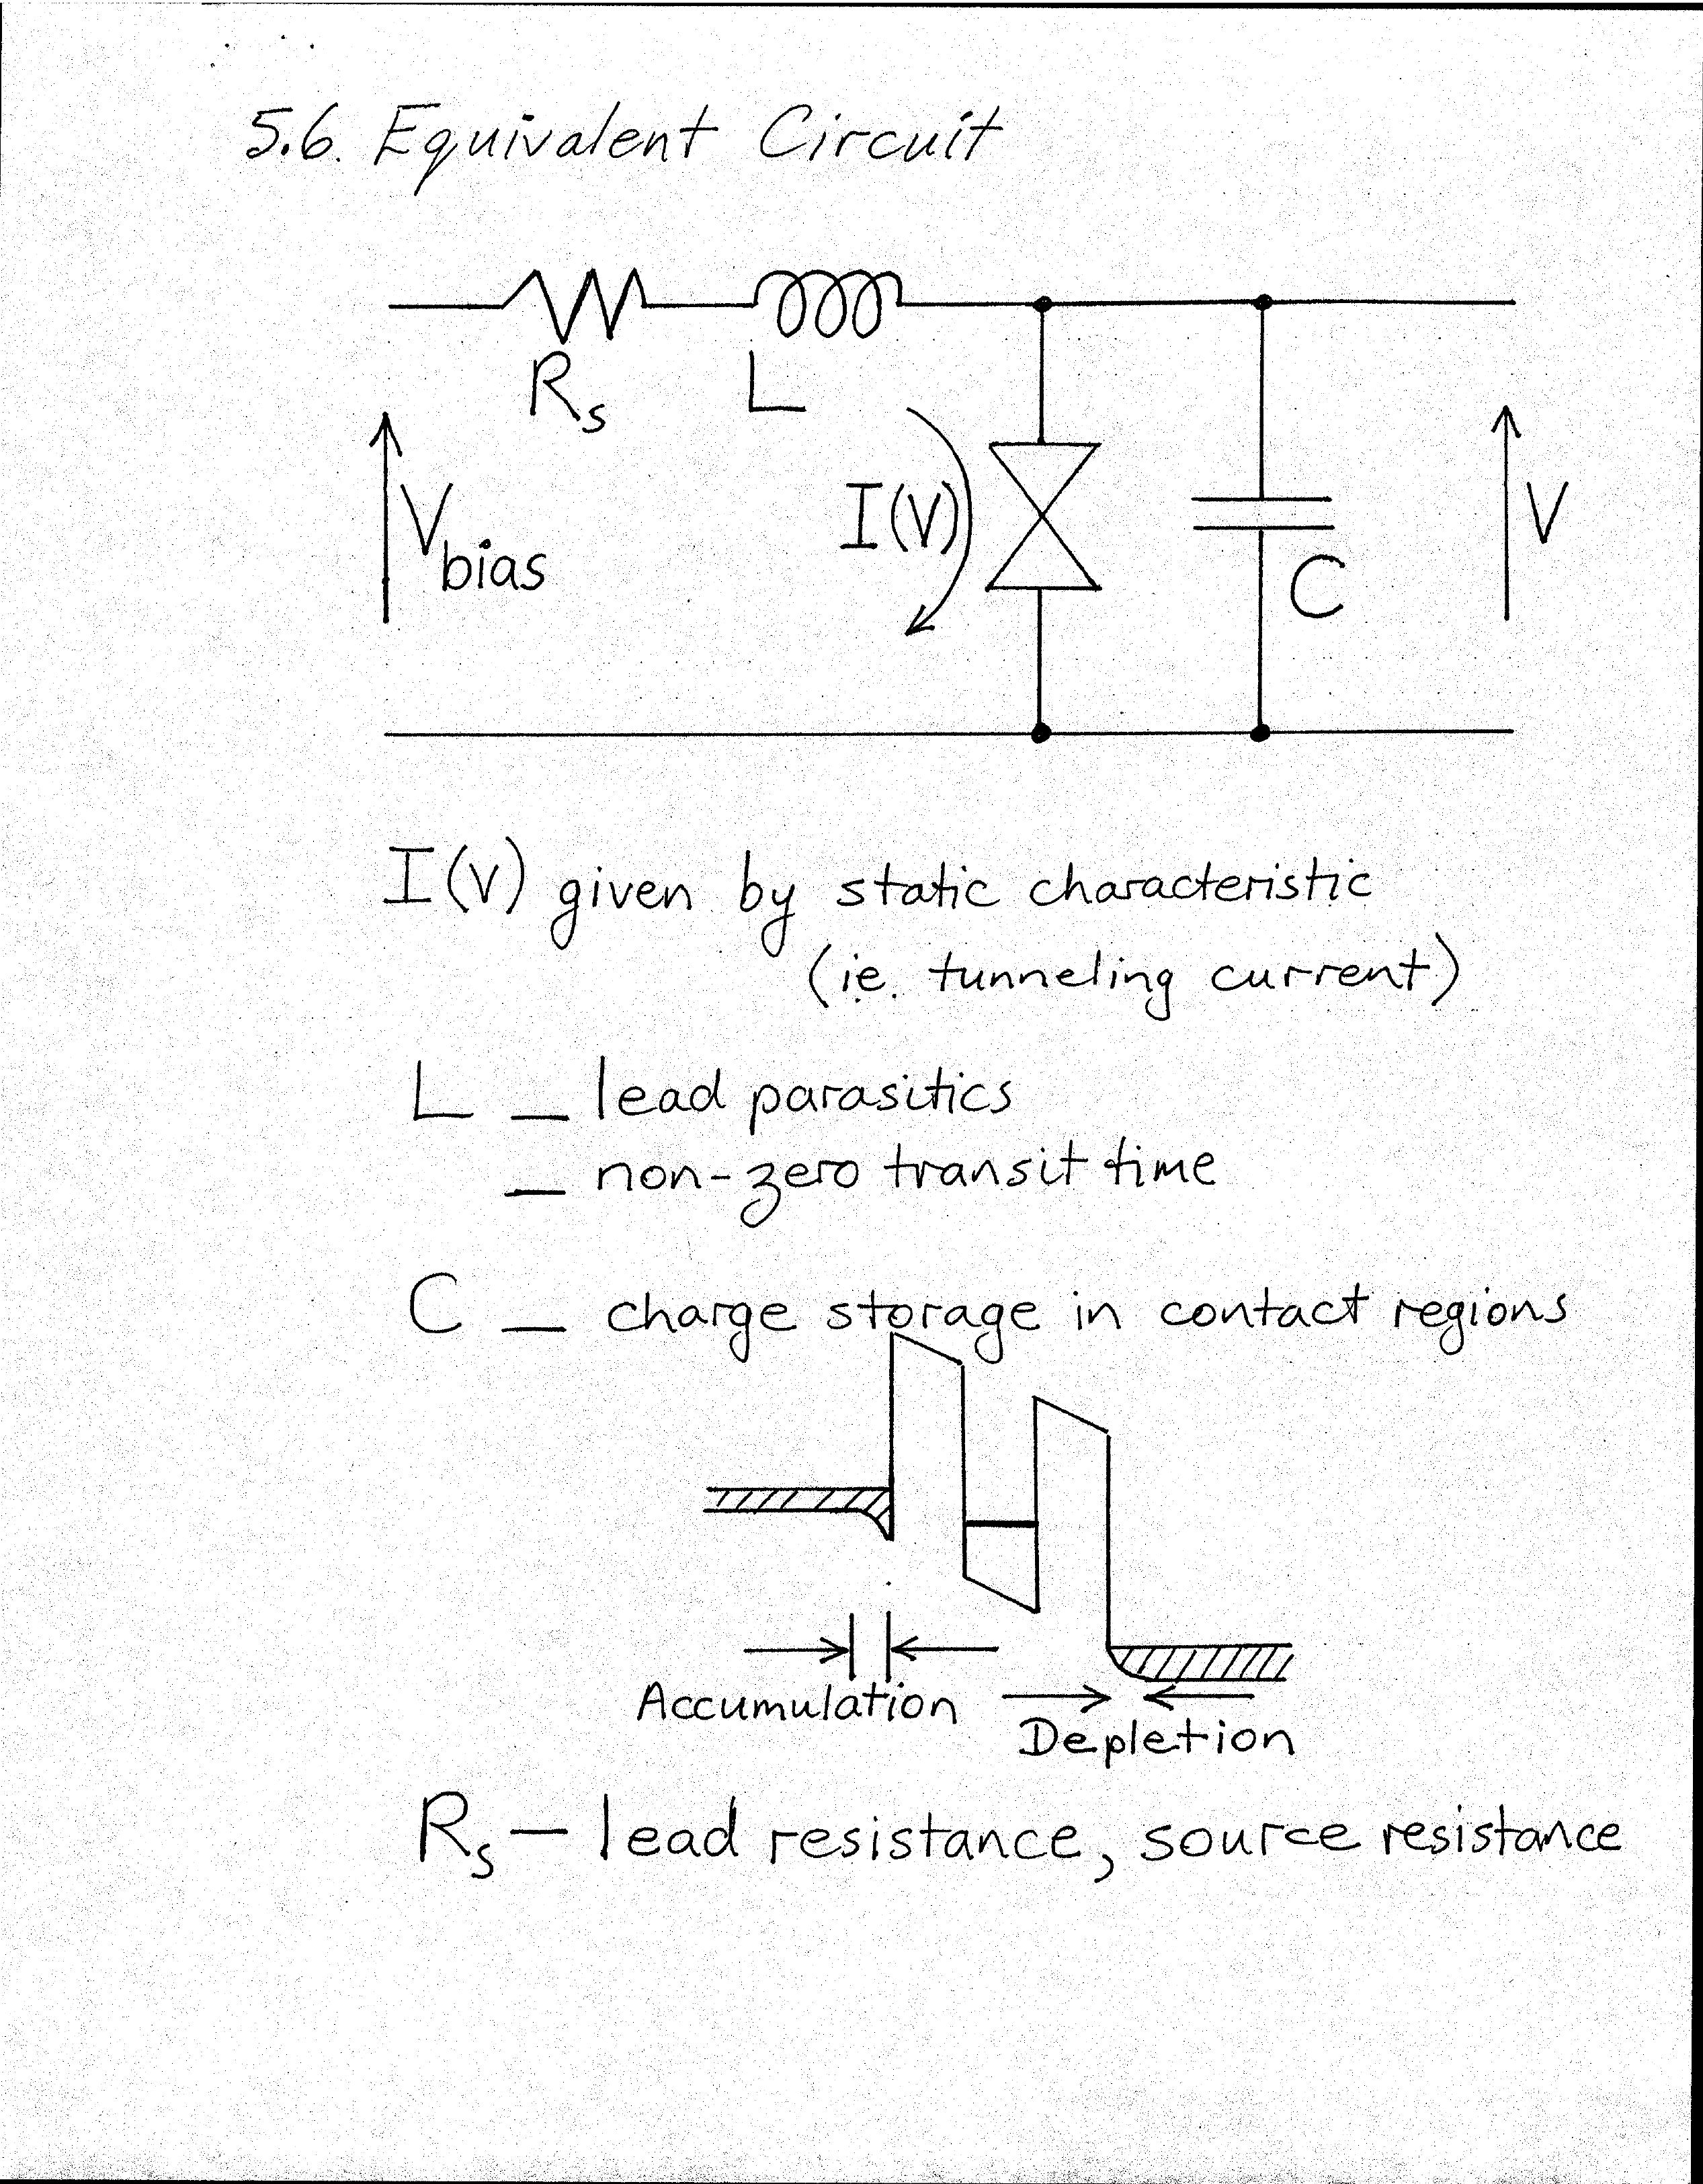 5.6. Equivalent Circuit
R_s L
V_bias I(V) C V
I(V) given by static characteristic
(ie. tunneling current)
L — lead parasitics
— non-zero transit time
C — charge storage in contact regions
Accumulation
Depletion
R_s — lead resistance, source resistance